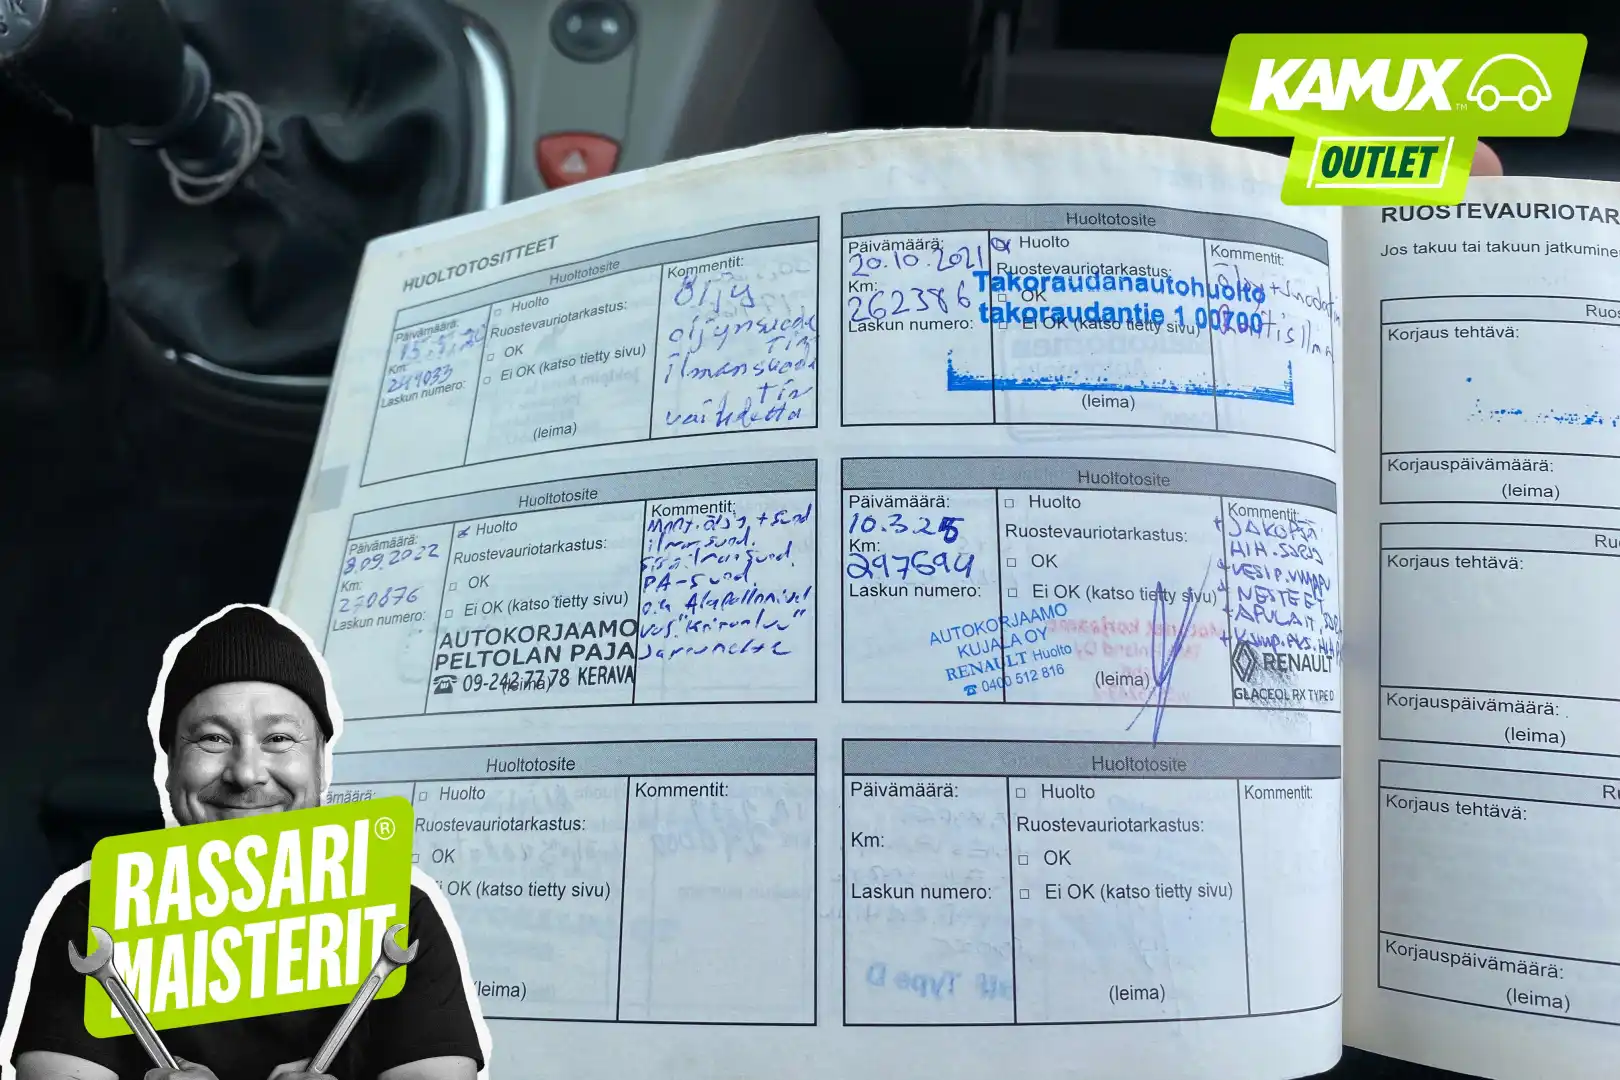 KAMUX
OUTLET
HUOLTOTOSITTEET
Huoltotosite
Päivämäärä:
Km:
241033
Laskun numero:
Huolto
Ruostevauriotarkastus:
OK
Ei OK (katso tietty sivu)
(leima)
Kommentit:
Öljy
öljynsuoda
tin
ilmansuoda
tin
vaihdettu
Huoltotosite
Päivämäärä:
20.10.2021
Km:
262386
Laskun numero:
Huolto
Ruostevauriotarkastus:
OK
Ei OK (katso tietty sivu)
Takoraudanautohuolto
takoraudantie 1 00700
(leima)
Kommentit:
Huoltotosite
Päivämäärä:
8.09.2022
Km:
270876
Laskun numero:
Huolto
Ruostevauriotarkastus:
OK
Ei OK (katso tietty sivu)
AUTOKORJAAMO
PELTOLAN PAJA
☎ 09-242 77 78 KERAVA
(leima)
Kommentit:
ilmansuod.
PA-suod.
Huoltotosite
Päivämäärä:
10.3.25
Km:
297694
Laskun numero:
Huolto
Ruostevauriotarkastus:
OK
Ei OK (katso tietty sivu)
AUTOKORJAAMO
KUJALA OY
RENAULT Huolto
☎ 0400 512 816
(leima)
Kommentit:
+ JAKOPÄÄ
HIH. SARJA
+ VESIP.
+ NESTEET
RENAULT
GLACEOL RX TYPE D
Huoltotosite
Huolto
Ruostevauriotarkastus:
OK
OK (katso tietty sivu)
(leima)
Kommentit:
Huoltotosite
Päivämäärä:
Km:
Laskun numero:
Huolto
Ruostevauriotarkastus:
OK
Ei OK (katso tietty sivu)
(leima)
Kommentit:
RUOSTEVAURIOTAR
Jos takuu tai takuun jatkumine
Ruos
Korjaus tehtävä:
Korjauspäivämäärä:
(leima)
Ru
Korjaus tehtävä:
Korjauspäivämäärä:
(leima)
R
Korjaus tehtävä:
Korjauspäivämäärä:
(leima)
RASSARI®
MAISTERIT